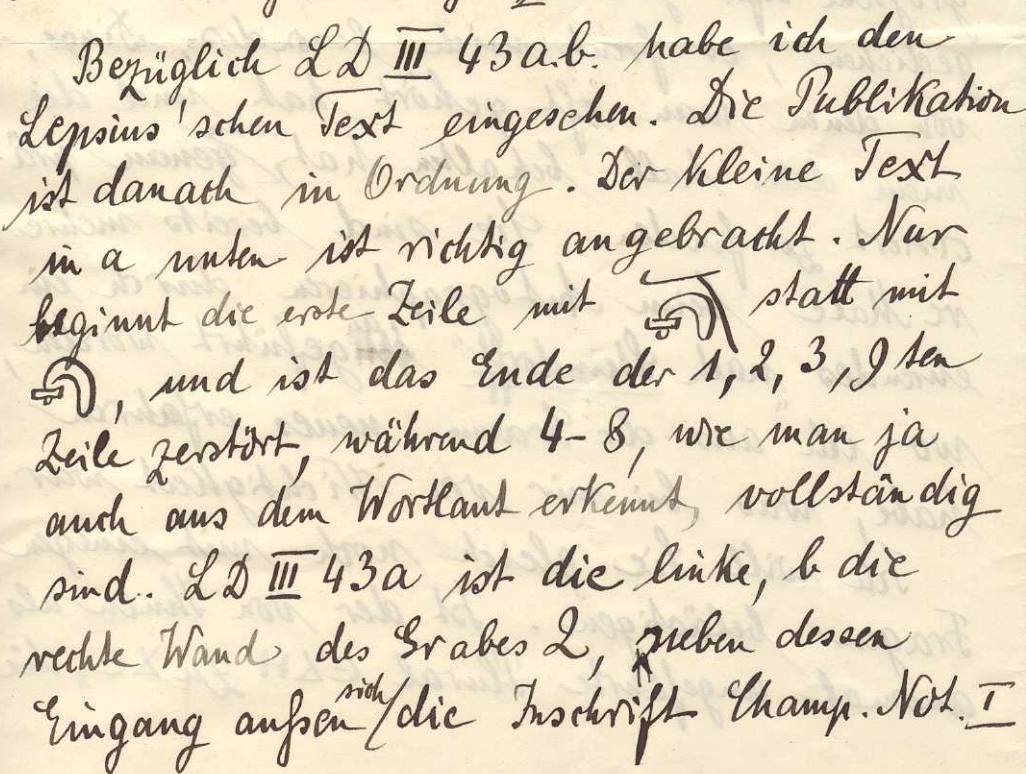 Bezüglich LD III 43a.b. habe ich den
Lepsius'schen Text eingesehen. Die Publikation
ist danach in Ordnung. Der kleine Text
in a unten ist richtig angebracht. Nur
beginnt die erste Zeile mit statt mit
, und ist das Ende der 1, 2, 3, 9ten
Zeile zerstört, während 4-8, wie man ja
auch aus dem Wortlaut erkennt, vollständig
sind. LD III 43a ist die linke, b die
rechte Wand des Grabes 2, neben dessen
Eingang außen sich die Inschrift Champ. Not. I